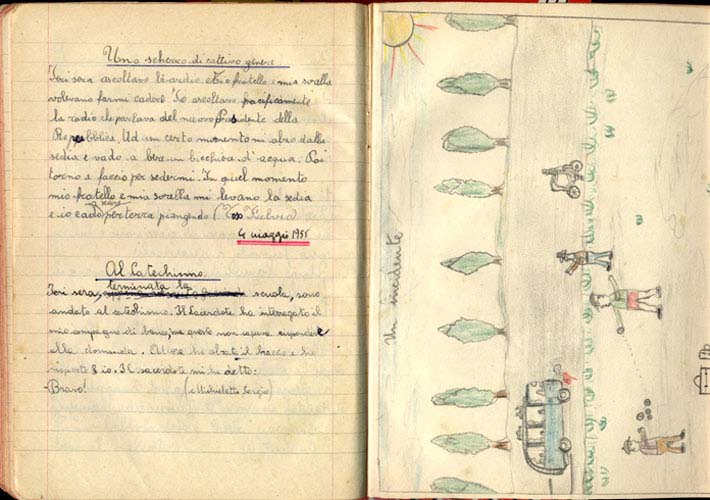 Uno scherzo di cattivo genere
Ieri sera ascoltavo la radio e mio fratello e mia sorella
volevano farmi cadere. Io ascoltavo pacificamente
la radio che parlava del nuovo Presidente della
Repubblica. Ad un certo momento mi alzo dalla
sedia e vado a bere un bicchiere d'acqua. Poi
torno e faccio per sedermi. In quel momento
mio fratello e mia sorella mi levano la sedia
e io cado a sedere per terra piangendo ( Fulvio)
4 maggio 1955
Al Catechismo
Ieri sera, terminata la scuola, sono
andato al catechismo. Il Sacerdote ha interrogato il
mio compagno di banco, ma questo non sapeva rispondere
alla domanda. Allora ho alzato il braccio e ho
risposto io. Il sacerdote mi ha detto:
Bravo! (Michieletto Sergio)
Un incidente